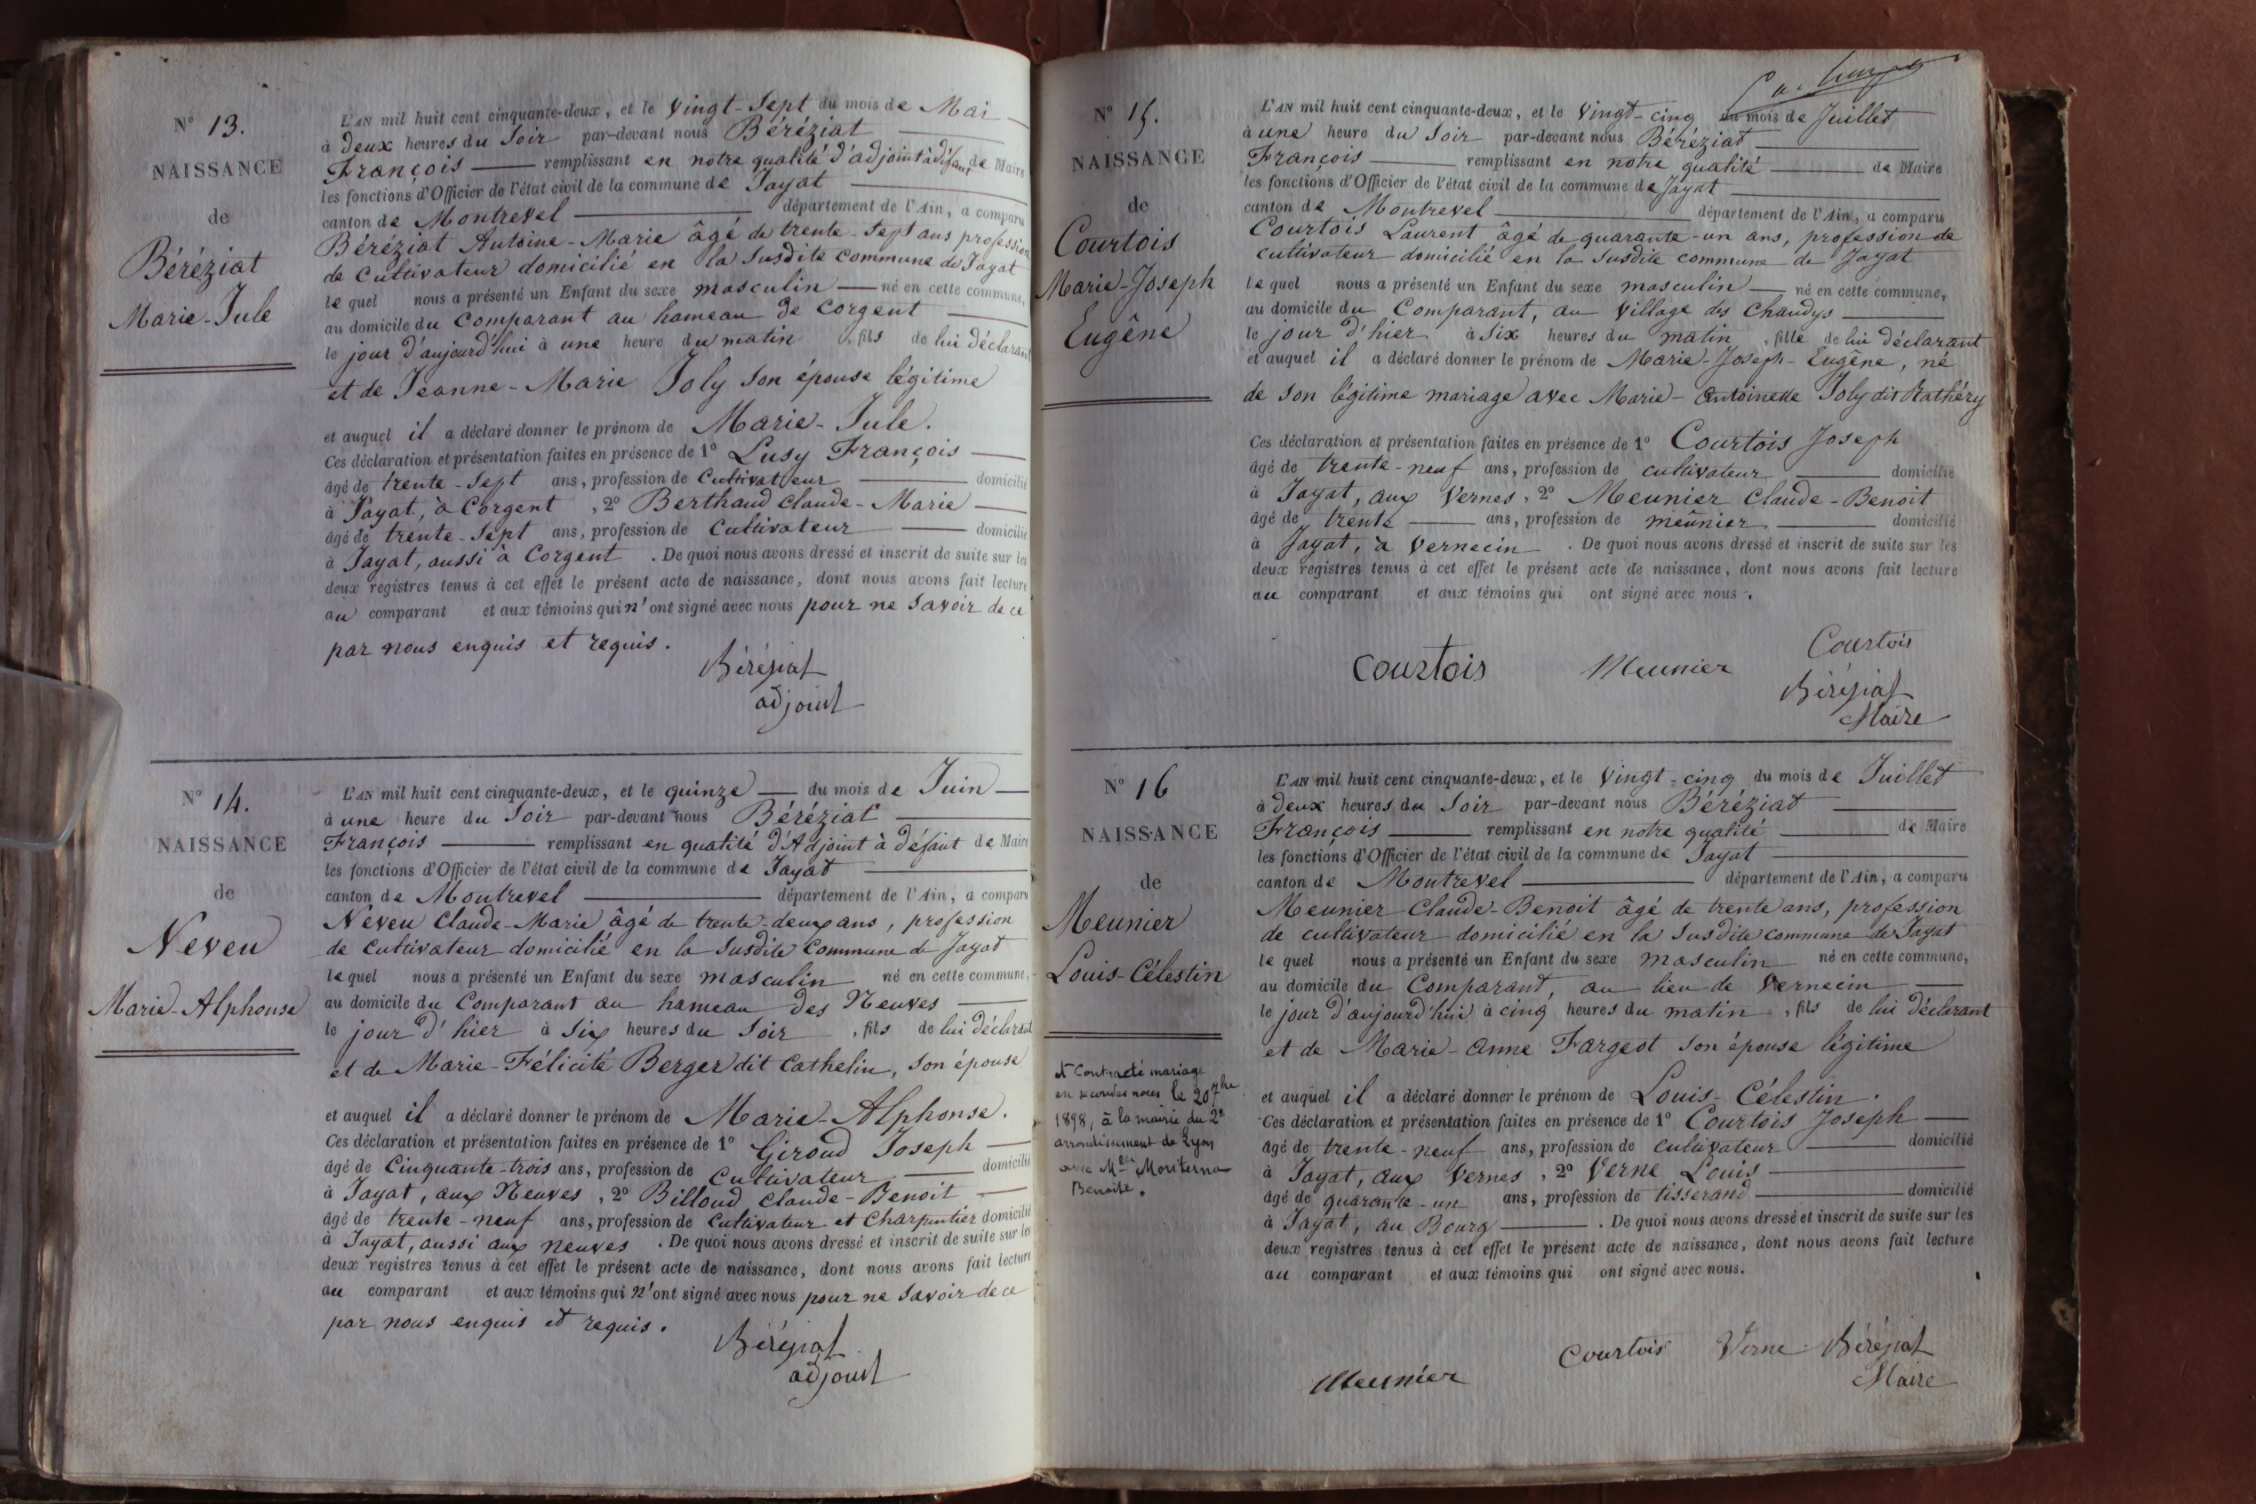 N° 13.
NAISSANCE
de
Béréziat
Marie-Jule
L'AN mil huit cent cinquante-deux, et le vingt-sept du mois de Mai
à deux heures du soir par-devant nous Béréziat
François remplissant en notre qualité d'adjoint à défaut de Maire
les fonctions d'Officier de l'état civil de la commune de Jayat
canton de Montrevel département de l'Ain, a comparu
Béréziat Antoine-Marie âgé de trente-sept ans profession
de cultivateur domicilié en la susdite commune de Jayat
lequel nous a présenté un Enfant du sexe masculin né en cette commune,
au domicile du comparant au hameau de Corgent
le jour d'aujourd'hui à une heure du matin, fils de lui déclarant
et de Jeanne-Marie Joly son épouse légitime
et auquel il a déclaré donner le prénom de Marie-Jule.
Ces déclaration et présentation faites en présence de 1° Lusy François
âgé de trente-sept ans, profession de cultivateur domicilié
à Jayat, à Corgent, 2° Berthaud Claude-Marie
âgé de trente-sept ans, profession de cultivateur domicilié
à Jayat, aussi à Corgent. De quoi nous avons dressé et inscrit de suite sur les
deux registres tenus à cet effet le présent acte de naissance, dont nous avons fait lecture
au comparant et aux témoins qui n'ont signé avec nous pour ne savoir de ce
par nous enquis et requis.
Béréziat
adjoint
N° 14.
NAISSANCE
de
Neveu
Marie-Alphonse
L'AN mil huit cent cinquante-deux, et le quinze du mois de Juin
à une heure du soir par-devant nous Béréziat
François remplissant en qualité d'Adjoint à défaut de Maire
les fonctions d'Officier de l'état civil de la commune de Jayat
canton de Montrevel département de l'Ain, a comparu
Neveu Claude-Marie âgé de trente-deux ans, profession
de cultivateur domicilié en la susdite commune de Jayat
lequel nous a présenté un Enfant du sexe masculin né en cette commune,
au domicile du comparant au hameau des Neuves
le jour d'hier à six heures du soir, fils de lui déclarant
et de Marie-Félicité Berger dit Cathelin, son épouse
et auquel il a déclaré donner le prénom de Marie-Alphonse.
Ces déclaration et présentation faites en présence de 1° Giroud Joseph
âgé de cinquante-trois ans, profession de cultivateur domicilié
à Jayat, aux Neuves, 2° Billoud Claude-Benoit
âgé de trente-neuf ans, profession de cultivateur et charpentier domicilié
à Jayat, aussi aux neuves. De quoi nous avons dressé et inscrit de suite sur les
deux registres tenus à cet effet le présent acte de naissance, dont nous avons fait lecture
au comparant et aux témoins qui n'ont signé avec nous pour ne savoir de ce
par nous enquis et requis.
Béréziat
adjoint
N° 15.
NAISSANCE
de
Courtois
Marie-Joseph
Eugêne
L'AN mil huit cent cinquante-deux, et le vingt-cinq du mois de Juillet
à une heure du soir par-devant nous Béréziat
François remplissant en notre qualité de Maire
les fonctions d'Officier de l'état civil de la commune de Jayat
canton de Montrevel département de l'Ain, a comparu
Courtois Laurent âgé de quarante-un ans, profession de
cultivateur domicilié en la susdite commune de Jayat
lequel nous a présenté un Enfant du sexe masculin né en cette commune,
au domicile du comparant, au village des Chaudys
le jour d'hier à six heures du matin, fille de lui déclarant
et auquel il a déclaré donner le prénom de Marie-Joseph-Eugêne, né
de son légitime mariage avec Marie-Antoinette Joly dit Rathéry
Ces déclaration et présentation faites en présence de 1° Courtois Joseph
âgé de trente-neuf ans, profession de cultivateur domicilié
à Jayat, aux Vernes, 2° Meunier Claude-Benoit
âgé de trente ans, profession de meûnier domicilié
à Jayat, à Vernecin. De quoi nous avons dressé et inscrit de suite sur les
deux registres tenus à cet effet le présent acte de naissance, dont nous avons fait lecture
au comparant et aux témoins qui ont signé avec nous.
Courtois
Courtois Meunier
Béréziat
Maire
N° 16
NAISSANCE
de
Meunier
Louis-Célestin
A Contracté mariage
en secondes noces le 20 7bre
1898, à la mairie du 2e
arrondissement de Lyon
avec Mlle Moriterno
Benoite.
L'AN mil huit cent cinquante-deux, et le vingt-cinq du mois de Juillet
à deux heures du soir par-devant nous Béréziat
François remplissant en notre qualité de Maire
les fonctions d'Officier de l'état civil de la commune de Jayat
canton de Montrevel département de l'Ain, a comparu
Meunier Claude-Benoit âgé de trente ans, profession
de cultivateur domicilié en la susdite commune de Jayat
lequel nous a présenté un Enfant du sexe masculin né en cette commune,
au domicile du comparant, au lieu de Vernecin
le jour d'aujourd'hui à cinq heures du matin, fils de lui déclarant
et de Marie-Anne Fargeot son épouse légitime
et auquel il a déclaré donner le prénom de Louis-Célestin.
Ces déclaration et présentation faites en présence de 1° Courtois Joseph
âgé de trente-neuf ans, profession de cultivateur domicilié
à Jayat, aux Vernes, 2° Verne Louis
âgé de quarante-un ans, profession de tisserand domicilié
à Jayat, au Bourg. De quoi nous avons dressé et inscrit de suite sur les
deux registres tenus à cet effet le présent acte de naissance, dont nous avons fait lecture
au comparant et aux témoins qui ont signé avec nous.
Courtois Verne Béréziat
Meunier Maire